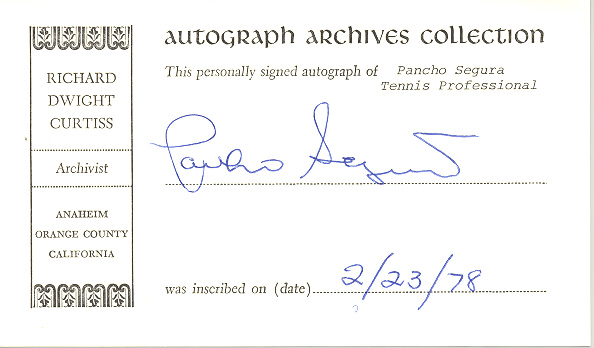 AUTOGRAPH ARCHIVES COLLECTION
RICHARD
DWIGHT
CURTISS
Archivist
ANAHEIM
ORANGE COUNTY
CALIFORNIA
This personally signed autograph of Pancho Segura
Tennis Professional
Pancho Segura
was inscribed on (date) 2/23/78